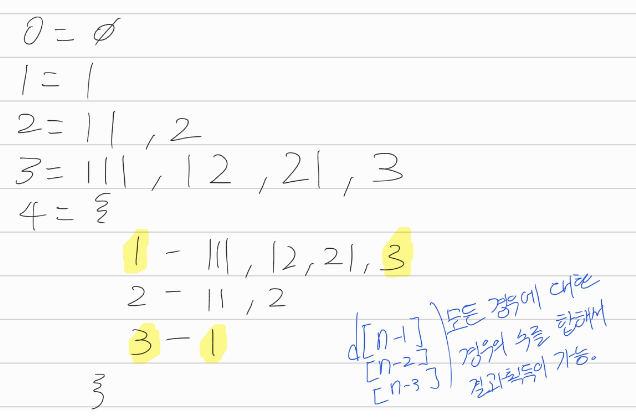 0 = ∅
1 = 1
2 = 11 , 2
3 = 111 , 12 , 21 , 3
4 = {
1 - 111 , 12 , 21 , 3
2 - 11 , 2
3 - 1
}
d[n-1]
[n-2]
[n-3]
모든 경우에 대한
경우의 수를 합해서
결과획득이 가능.